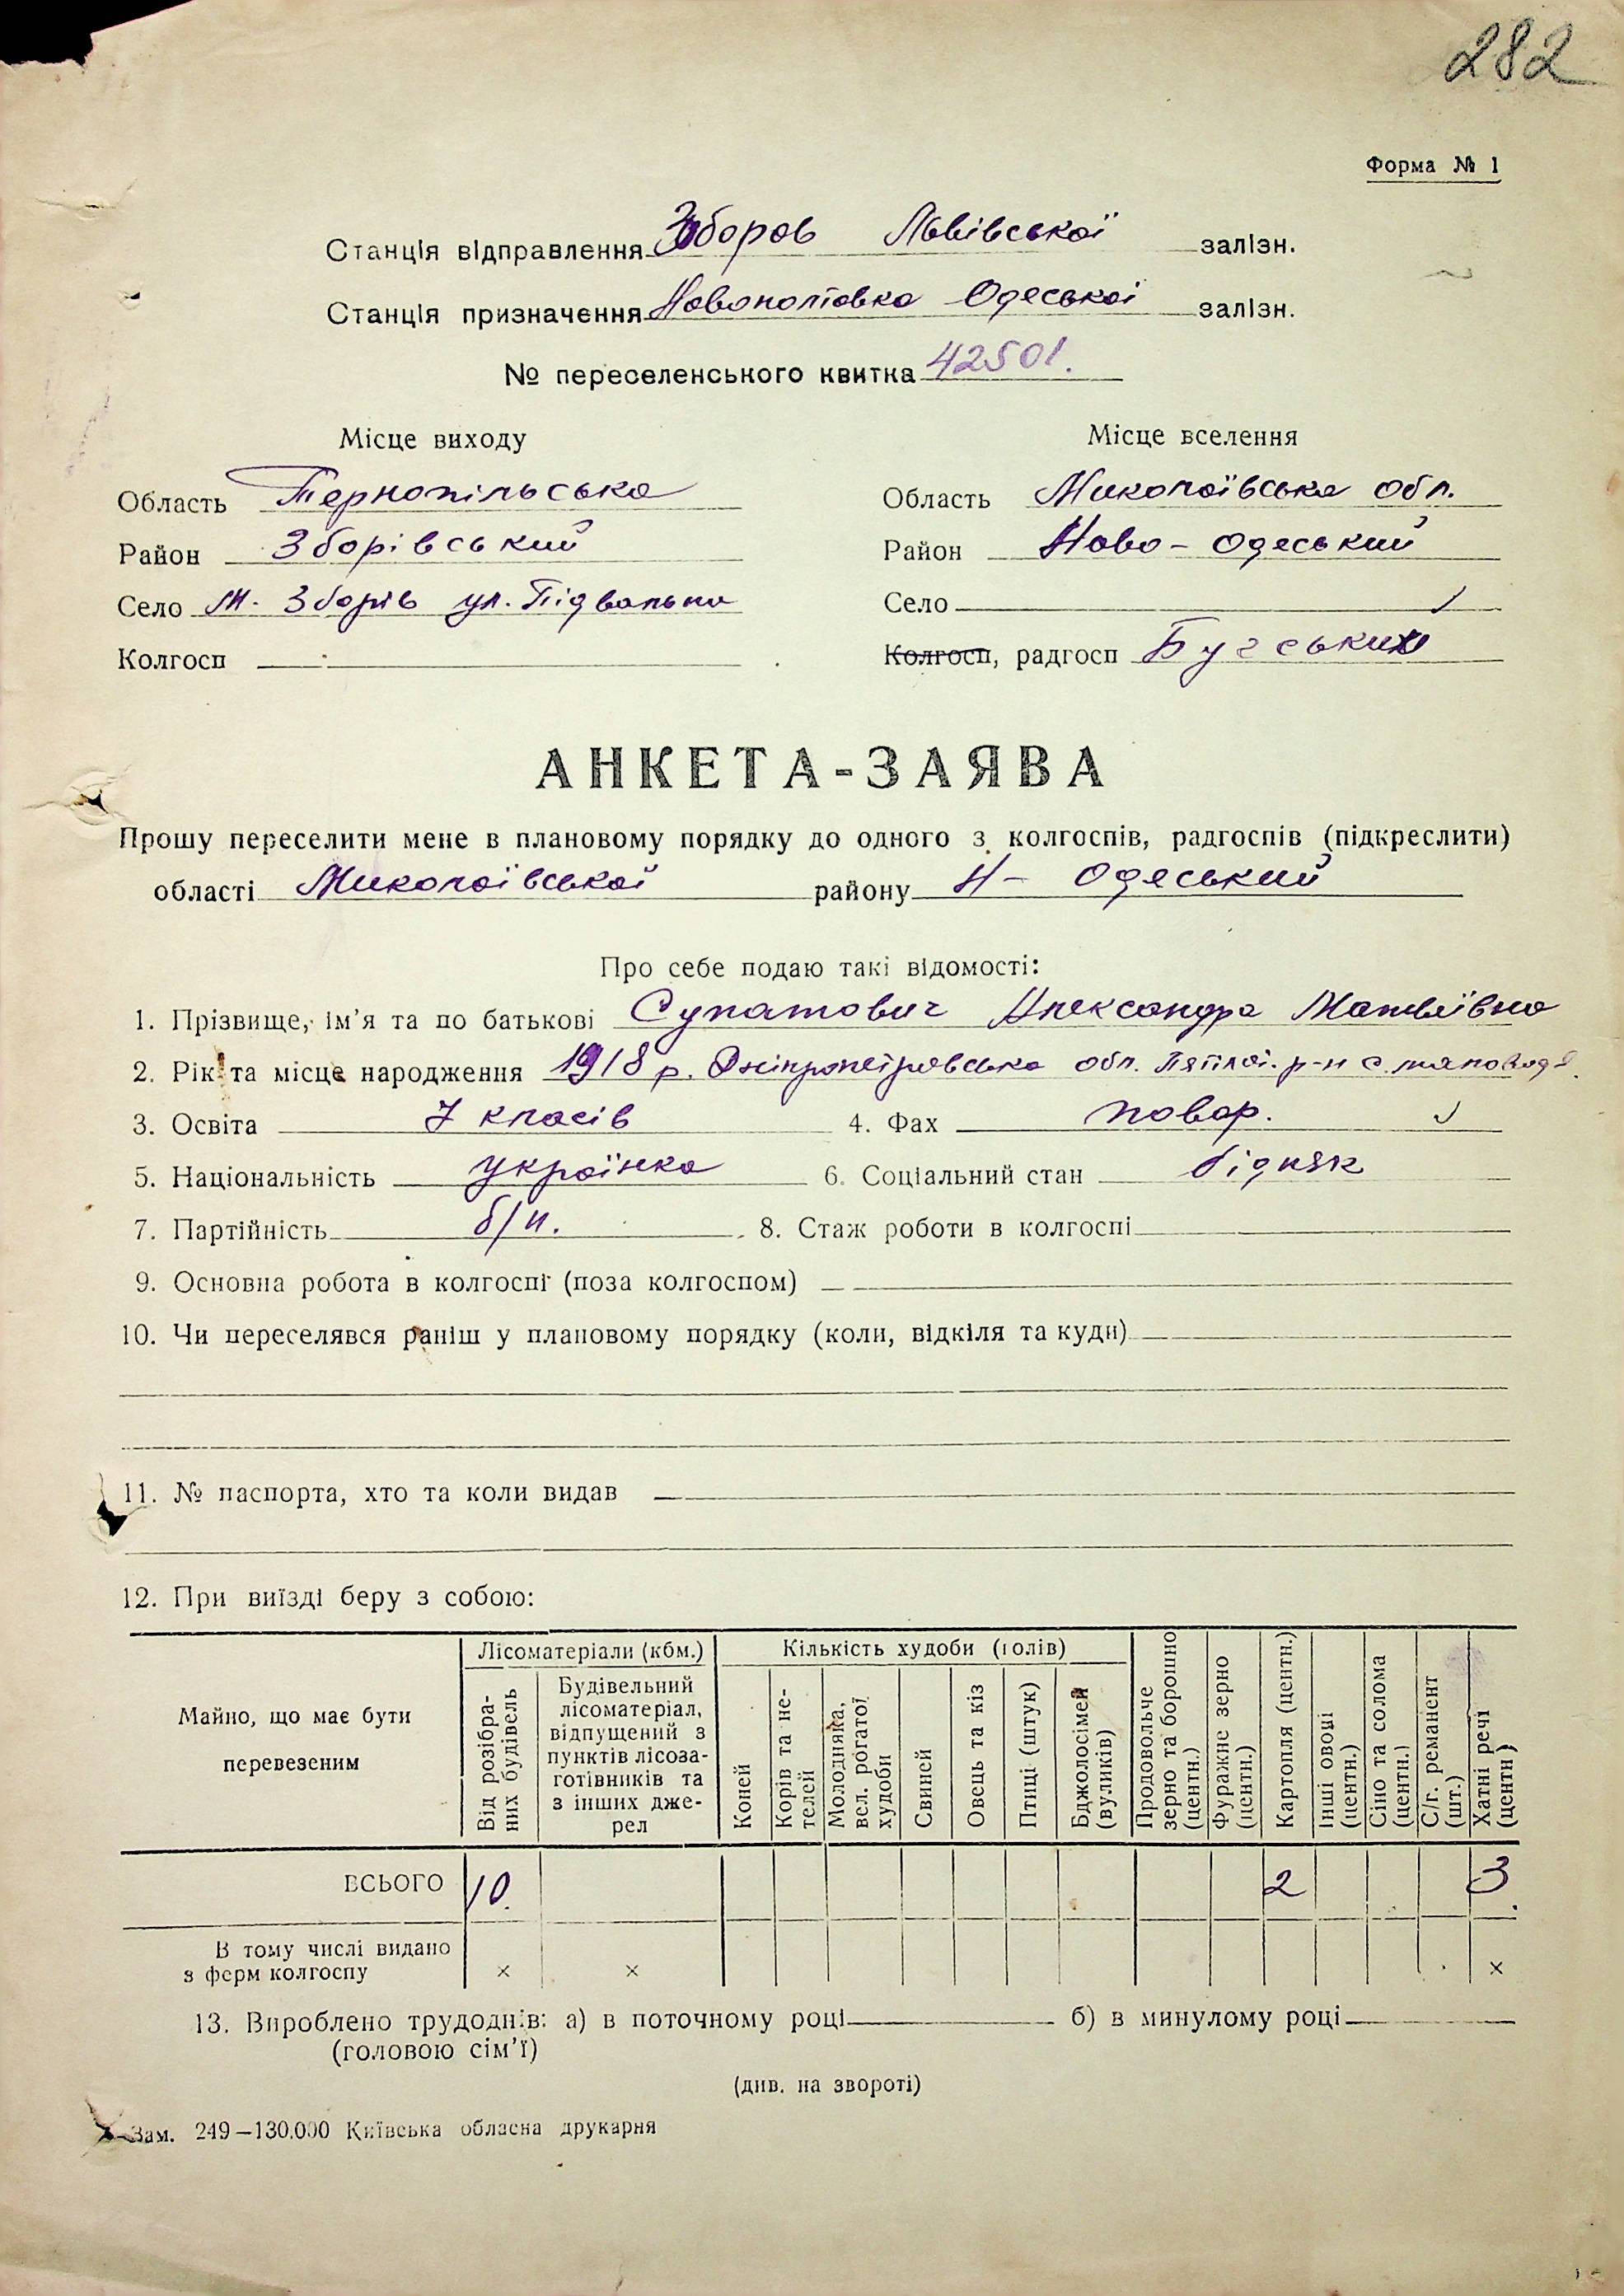 282
Форма № 1
Станція відправлення Зборов Львівської залізн.
Станція призначення Новополтовка Одеської залізн.
№ переселенського квитка 42501.
Місце виходу
Місце вселення
Область Тернопільська
Область Миколаївська обл.
Район Зборівський
Район Ново-Одеський
Село м. Зборів ул. Підвальна
Село
Колгосп
Колгосп, радгосп Бугський
АНКЕТА-ЗАЯВА
Прошу переселити мене в плановому порядку до одного з колгоспів, радгоспів (підкреслити)
області Миколаївської району Н-Одеський
Про себе подаю такі відомості:
1. Прізвище, ім’я та по батькові Супатович Александра Матвіївна
2. Рік та місце народження 1918 р. Дніпропетровська обл. р-н с.
3. Освіта 7 класів 4. Фах повар.
5. Національність українка 6. Соціальний стан бідняк
7. Партійність б/п. 8. Стаж роботи в колгоспі
9. Основна робота в колгоспі (поза колгоспом)
10. Чи переселявся раніш у плановому порядку (коли, відкіля та куди)
11. № паспорта, хто та коли видав
12. При виїзді беру з собою:
Майно, що має бути перевезеним
Лісоматеріали (кбм.)
Від розібраних будівель
Будівельний лісоматеріал, відпущений з пунктів лісозаготівників та з інших джерел
Кількість худоби (голів)
Коней
Корів та нетелей
Молодняка, вел. рогатої худоби
Свиней
Овець та кіз
Птиці (штук)
Бджолосімей (вуликів)
Продовольче зерно та борошно (центн.)
Фуражне зерно (центн.)
Картопля (центн.)
Інші овочі (центн.)
Сіно та солома (центн.)
С/г. реманент (шт.)
Хатні речі (центн)
ВСЬОГО 10. 2 3
В тому числі видано
з ферм колгоспу × × ×
13. Вироблено трудоднів: а) в поточному році б) в минулому році
(головою сім’ї)
(див. на звороті)
Зам. 249—130.000 Київська обласна друкарня